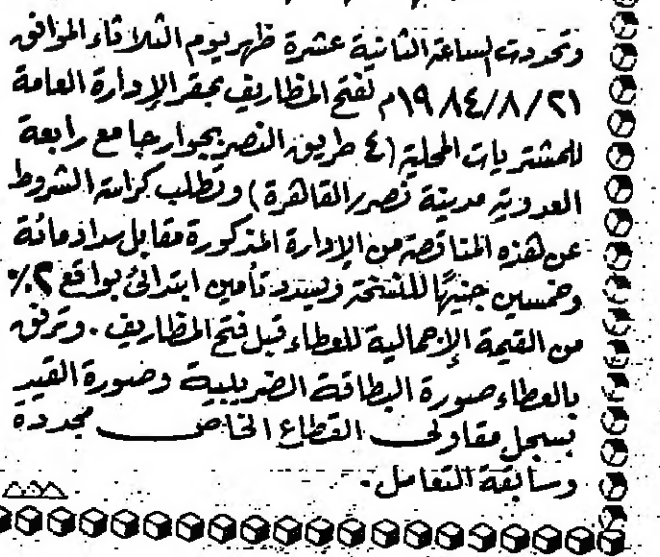 وتحددت لساعة الثانية عشرة ظهر يوم الثلاثاء الموافق
٢١/٨/١٩٨٤م لفتح المظاريف بمقر الإدارة العامة
للمشتريات المحلية (٤ طريق النصر بجوار جامع رابعة
العدوية مدينة نصر القاهرة) وتطلب كراسة الشروط
عن هذه المناقصة من الإدارة المذكورة مقابل سداد مائة
وخمسين جنيهًا للنسخة ويسدد تأمين ابتدائى بواقع ٢٪
من القيمة الإجمالية للعطاء قبل فتح المظاريف . وترفق
بالعطاء صورة البطاقة الضريبية وصورة القيد
بسجل مقاولى القطاع الخاص مجددة
وسابقة التعامل .